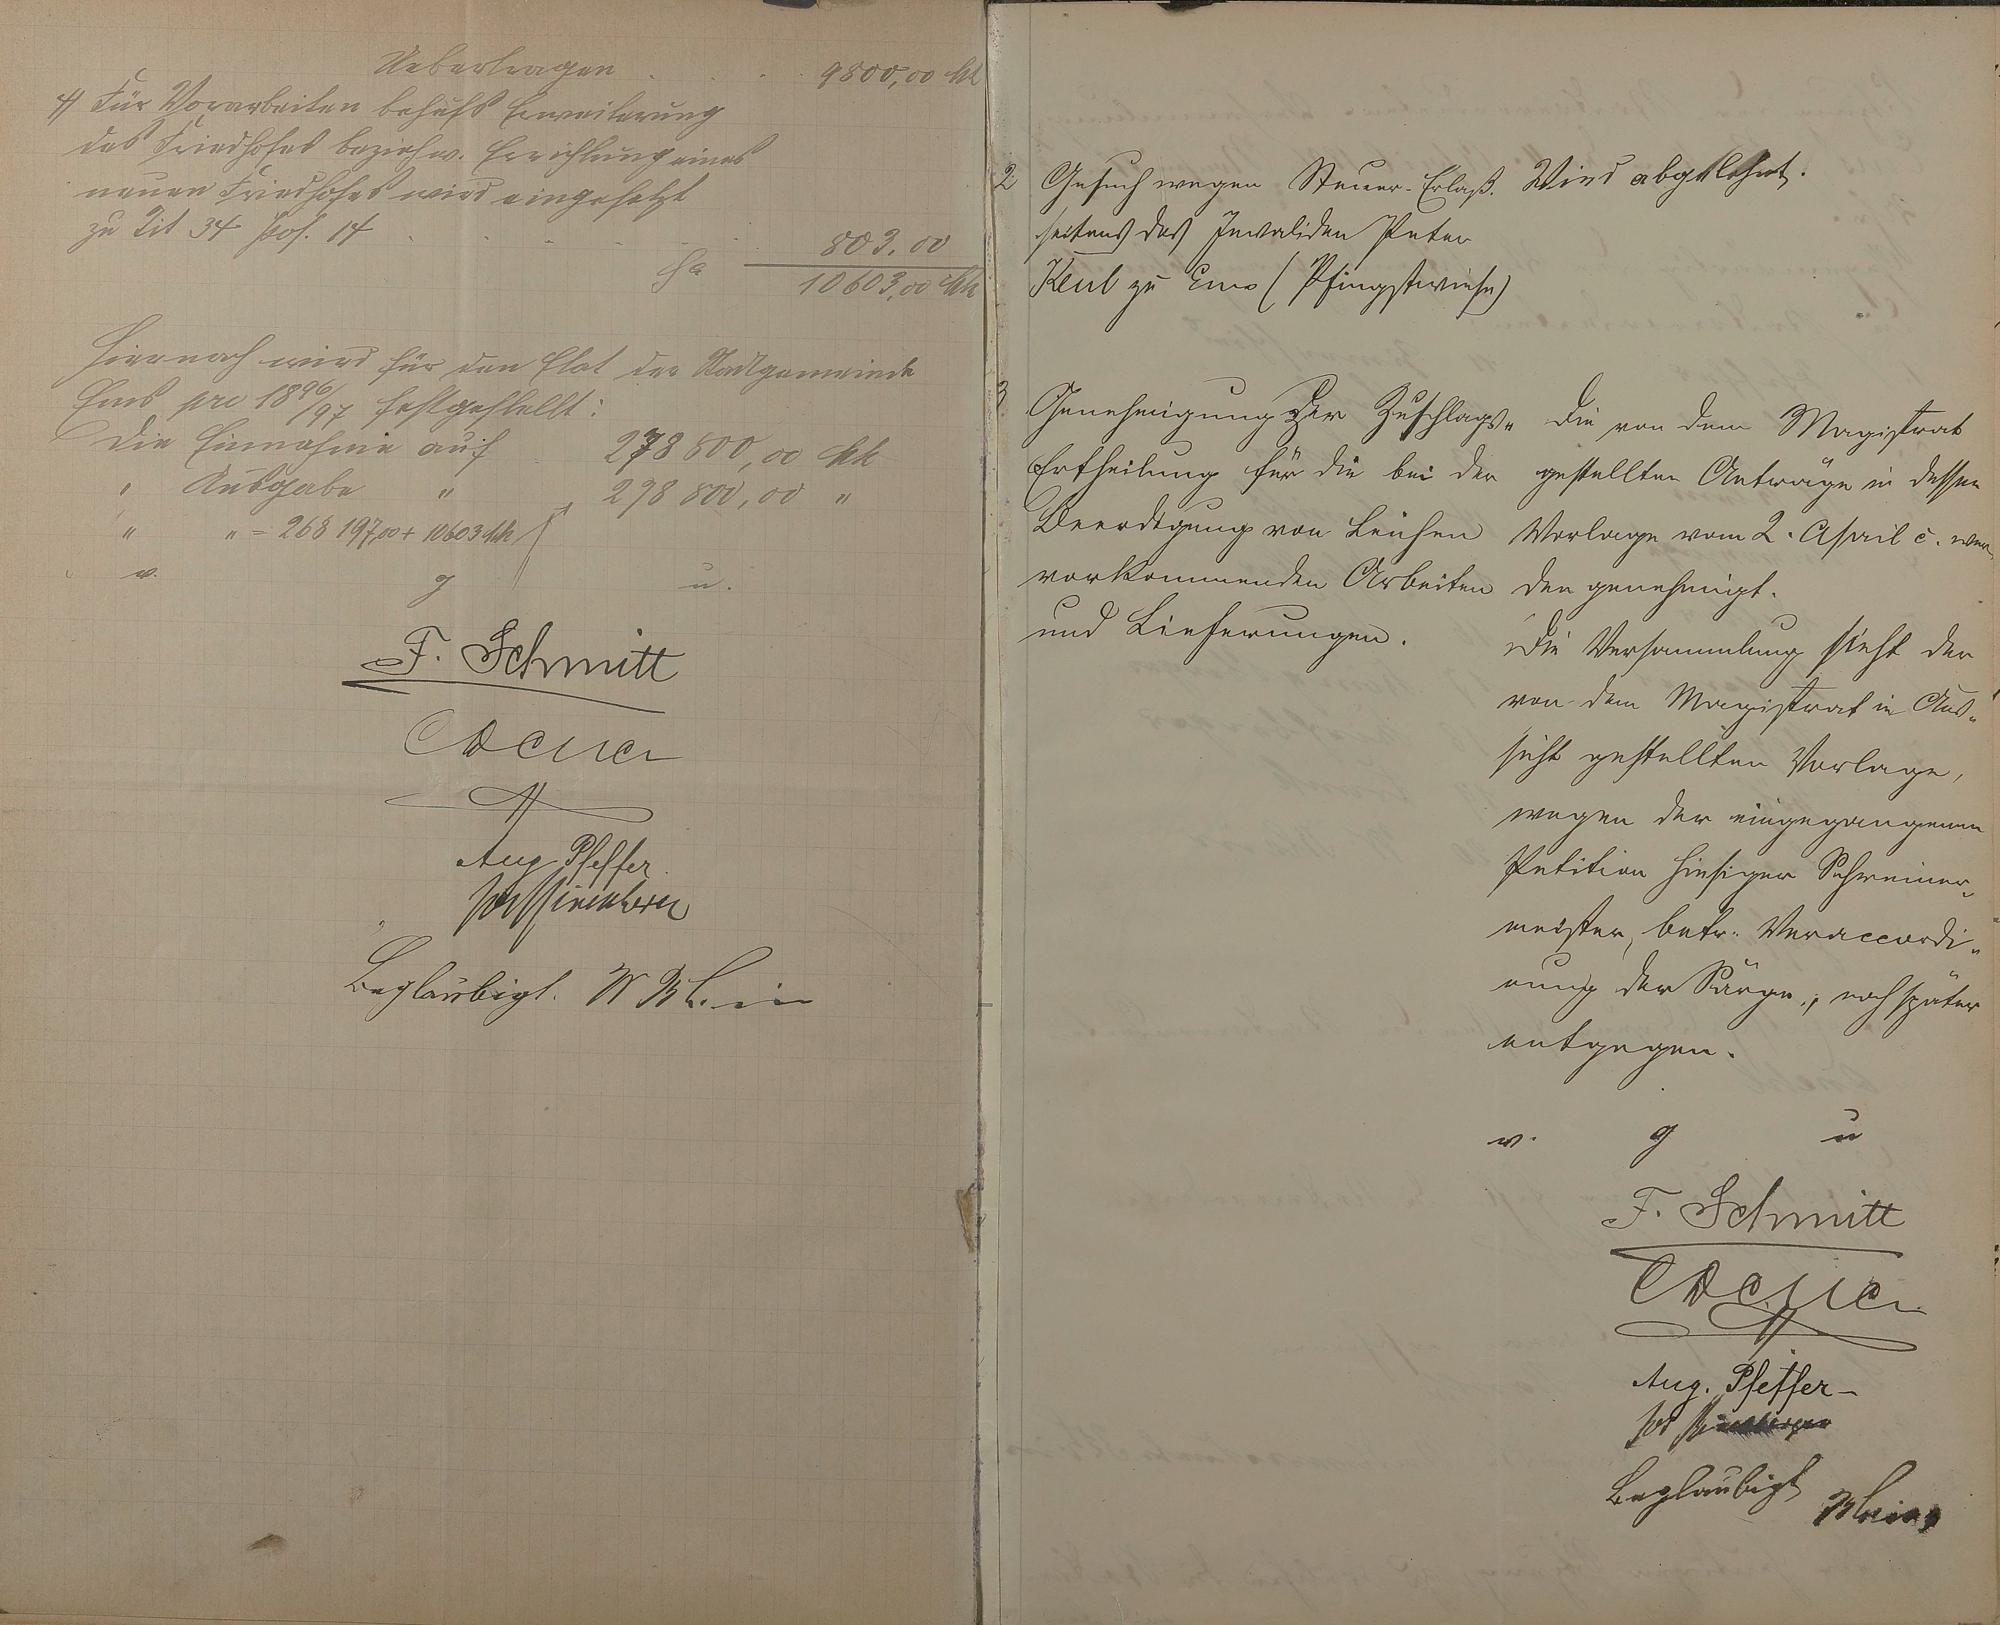 Uebertragen . . . 9800,00 Mk
4) Für Vorarbeiten behufs Erweiterung
des Friedhofes beziehw. Errichtung eines
neuen Friedhofes wird eingesetzt
zu Tit 34 Pos. 14 . . . . . . 803.00
Sa 10603,00 Mk
Hiernach wird für den Etat der Stadtgemeinde
Ems pro 1896/97 festgestellt:
Die Einnahme auf 278 800,00 Mk
" Ausgabe " 278 800,00 "
" " = 268 197,00 + 10603 Mk
v. g u.
F. Schmitt
Aug Pfeffer
Beglaubigt.
2 Gesuch wegen Steuer-Erlaß
seitens des Invaliden Peter
Keul zu Ems (Pfingstwiese)
Wird abgelehnt.
3 Genehmigung der Zuschlags-
Ertheilung für die bei der
Beerdigung von Leichen
vorkommenden Arbeiten
und Lieferungen.
Die von dem Magistrat
gestellten Anträge in dessen
Vorlage vom 2. April c. wer
den genehmigt.
Die Versammlung sieht der
von dem Magistrat in Aus-
sicht gestellten Vorlage,
wegen der eingegangenen
Petition hiesiger Schreiner-
meister, betr. Veraccordi-
rung der Särge, noch später
entgegen.
v. g u
F. Schmitt
Aug. Pfeffer
Beglaubigt